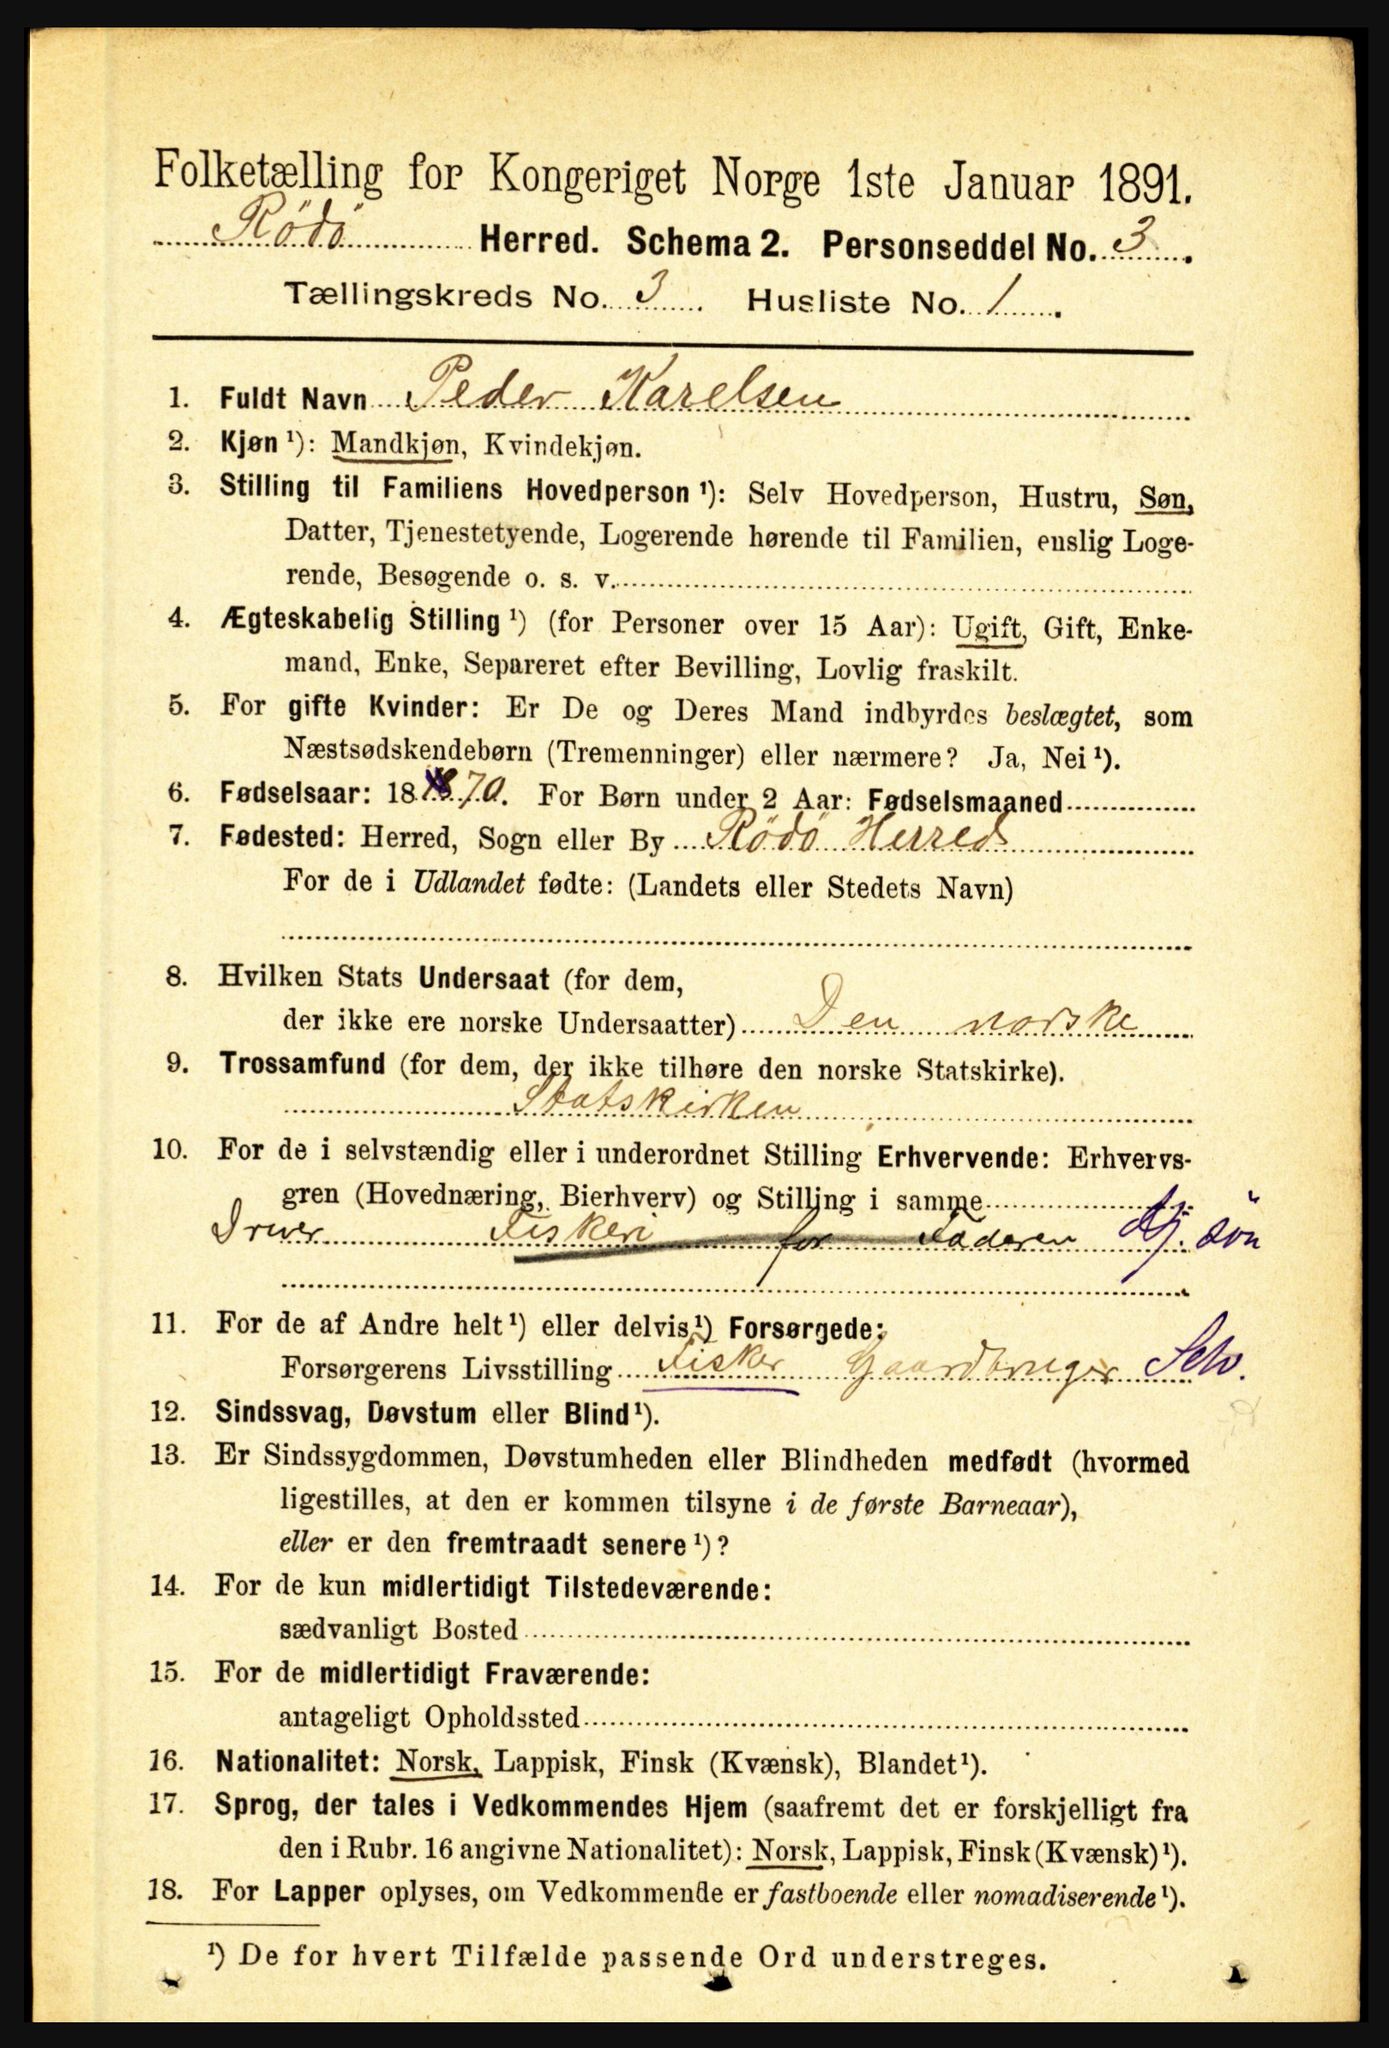 Folketælling for Kongeriget Norge 1ste Januar 1891.
Rödö Herred. Schema 2. Personseddel No. 3.
Tællingskreds No. 3. Husliste No. 1.
1. Fuldt Navn Peder Karelsen
2. Kjøn ¹): Mandkjøn, Kvindekjøn.
3. Stilling til Familiens Hovedperson ¹): Selv Hovedperson, Hustru, Søn,
Datter, Tjenestetyende, Logerende hørende til Familien, enslig Loge-
rende, Besøgende o. s. v.
4. Ægteskabelig Stilling ¹) (for Personer over 15 Aar): Ugift, Gift, Enke-
mand, Enke, Separeret efter Bevilling, Lovlig fraskilt.
5. For gifte Kvinder: Er De og Deres Mand indbyrdes beslægtet, som
Næstsødskendebørn (Tremenninger) eller nærmere? Ja, Nei ¹).
6. Fødselsaar: 1870. For Børn under 2 Aar: Fødselsmaaned
7. Fødested: Herred, Sogn eller By Rödö Herred
For de i Udlandet fødte: (Landets eller Stedets Navn)
8. Hvilken Stats Undersaat (for dem,
der ikke ere norske Undersaatter) Den norske
9. Trossamfund (for dem, der ikke tilhøre den norske Statskirke).
Statskirken
10. For de i selvstændig eller i underordnet Stilling Erhvervende: Erhvervs-
gren (Hovednæring, Bierhverv) og Stilling i samme
Driver Fiskeri for Faderen Gj. sön
11. For de af Andre helt ¹) eller delvis ¹) Forsørgede:
Forsørgerens Livsstilling Fisker Gaardbruger Selv.
12. Sindssvag, Døvstum eller Blind ¹).
13. Er Sindssygdommen, Døvstumheden eller Blindheden medfødt (hvormed
ligestilles, at den er kommen tilsyne i de første Barneaar),
eller er den fremtraadt senere ¹)?
14. For de kun midlertidigt Tilstedeværende:
sædvanligt Bosted
15. For de midlertidigt Fraværende:
antageligt Opholdssted
16. Nationalitet: Norsk, Lappisk, Finsk (Kvænsk), Blandet ¹).
17. Sprog, der tales i Vedkommendes Hjem (saafremt det er forskjelligt fra
den i Rubr. 16 angivne Nationalitet): Norsk, Lappisk, Finsk (Kvænsk) ¹).
18. For Lapper oplyses, om Vedkommende er fastboende eller nomadiserende ¹).
¹) De for hvert Tilfælde passende Ord understreges.